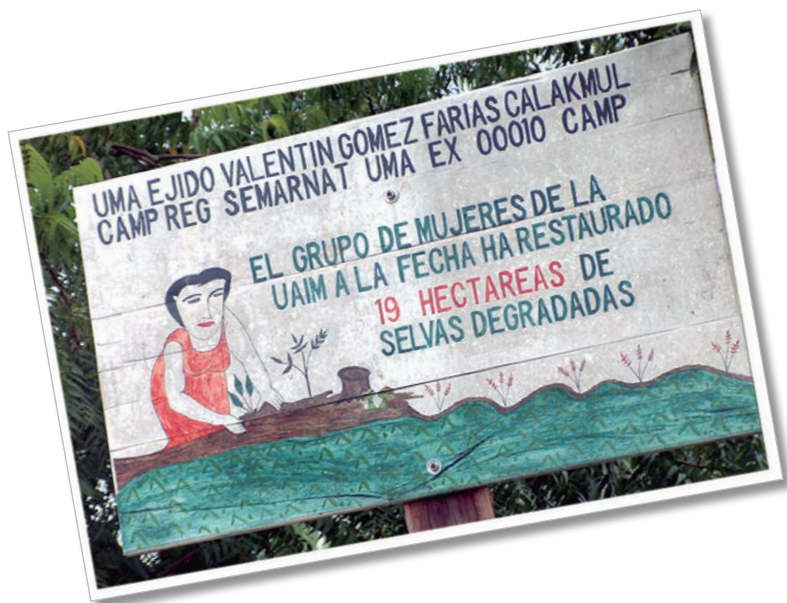 UMA EJIDO VALENTIN GOMEZ FARIAS CALAKMUL
CAMP REG SEMARNAT UMA EX 00010 CAMP
EL GRUPO DE MUJERES DE LA
UAIM A LA FECHA HA RESTAURADO
19 HECTAREAS DE
SELVAS DEGRADADAS